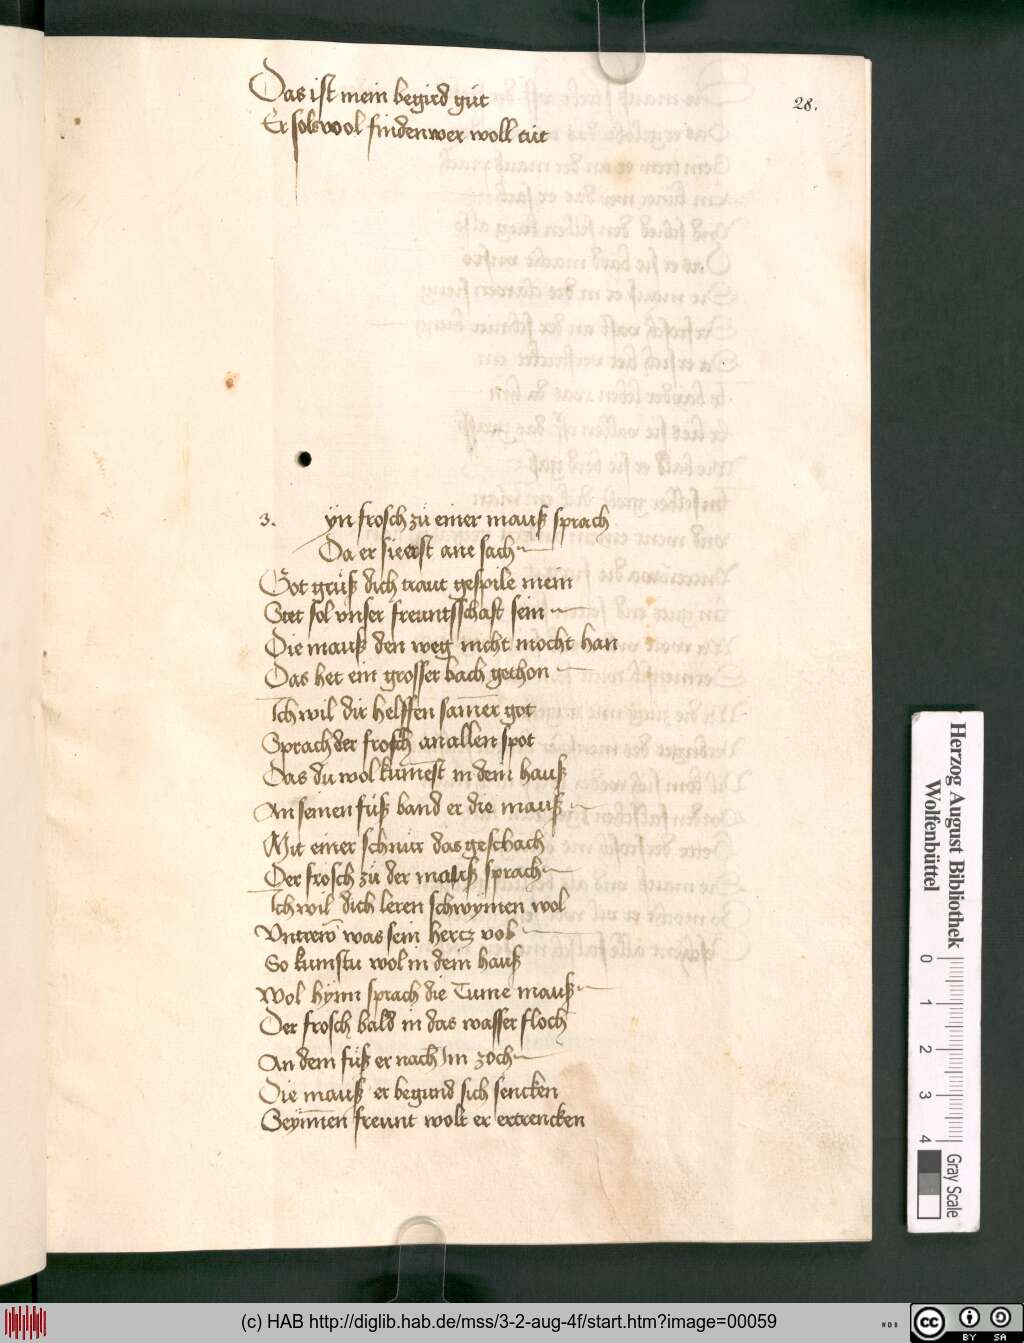 28.
Das ist mein begird gůt
Er sols wol finden wer woll tůt
3. yn frosch zů einer mauß sprach
Da er sie erst ane sach
Got grůß dich traut gespile mein
Stet sol vnser freuntsschaft sein
Die mauß den weg nicht mocht han
Das het ein grosser bach gethon
Ich wil dir helffen sam̄er got
Sprach der frosch an allen spot
Das du wol kum̄est in dein hauß
An seinen fůß band er die mauß
Mit einer schnůr das geschach
Der frosch zů der mauß sprach
Ich wil dich leren schwymen wol
Vntrew was sein hertz vol
So kumstu wol in dein hauß
Wol hynn sprach die Tume mauß
Der frosch bald in das wasser floch
An dem fůß er nach Im zoch
Die mauß er begund sich sencken
Seyn̄en freunt wolt er ertrencken
Herzog August Bibliothek
Wolfenbüttel
0 1 2 3 4
Gray Scale
(c) HAB http://diglib.hab.de/mss/3-2-aug-4f/start.htm?image=00059
WDB
cc BY SA